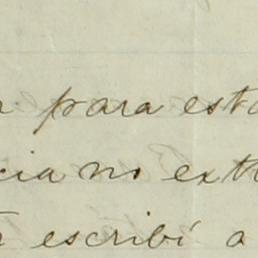 para esta
cia no ext
escribí a